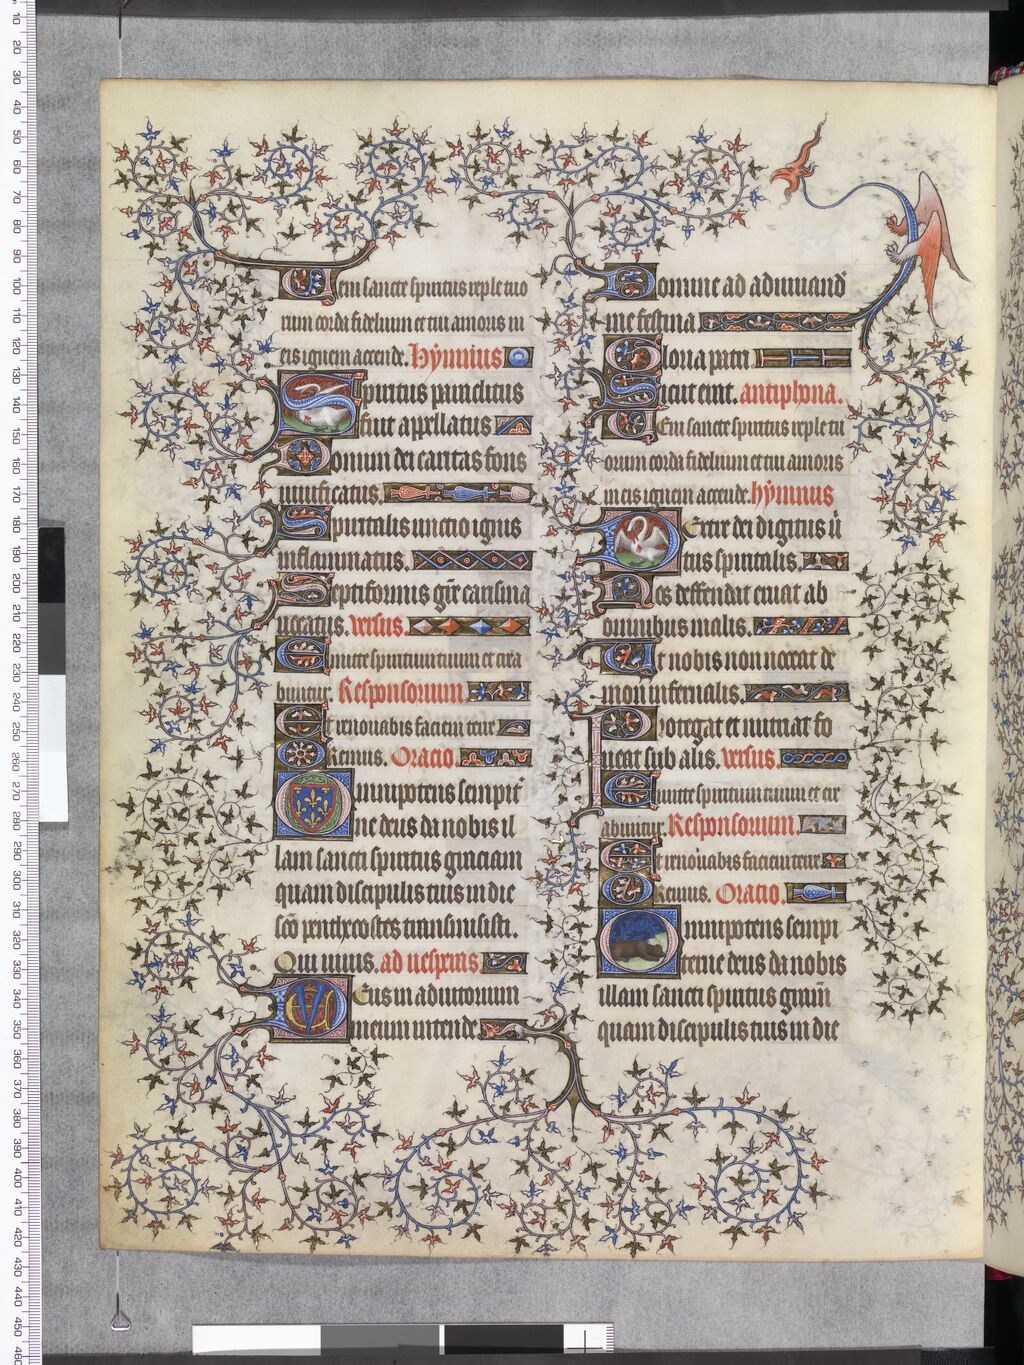 Veni sancte spiritus reple tuo
rum corda fidelium et tui amoris in
eis ignem accende. hympnus
Spiritus paraclitus
fuit appellatus
Donum dei caritas fons
uiuificatus.
Spiritalis unctio ignis
inflammatus.
Septiformis gr̄e carisma
uocatus. versus.
Emitte spiritum tuum et crea
buntur. Responsorium.
Et renouabis faciem terre.
Oremus. Oracio.
Omnipotens sempit̄
ne deus da nobis il
lam sancti spiritus graciam
quam discipulis tuis in die
sc̄o penthecostes transmisisti.
Qui uiuis. ad uesperas.
Deus in adiutorium
meum intende
Domine ad adiuuand̄
me festina
Gloria patri
Sicut erat. antiphona.
Veni sancte spiritus reple tu
orum corda fidelium et tui amoris
in eis ignem accende. hympnus
Dextre dei digitus uir̄
tus spiritalis.
Nos deffendat eruat ab
omnibus malis.
Ut nobis non noceat de
mon infernalis.
Protegat et nutriat fo
ueat sub alis. versus.
Emitte spiritum tuum et cre
abuntur. Responsorium.
Et renouabis faciem terre
Oremus. Oracio.
Omnipotens sempi
terne deus da nobis
illam sancti spiritus grām
quam discipulis tuis in die
10 20 30 40 50 60 70 80 90 100 110 120 130 140 150 160 170 180 190 200 210 220 230 240 250 260 270 280 290 300 310 320 330 340 350 360 370 380 390 400 410 420 430 440 450 460